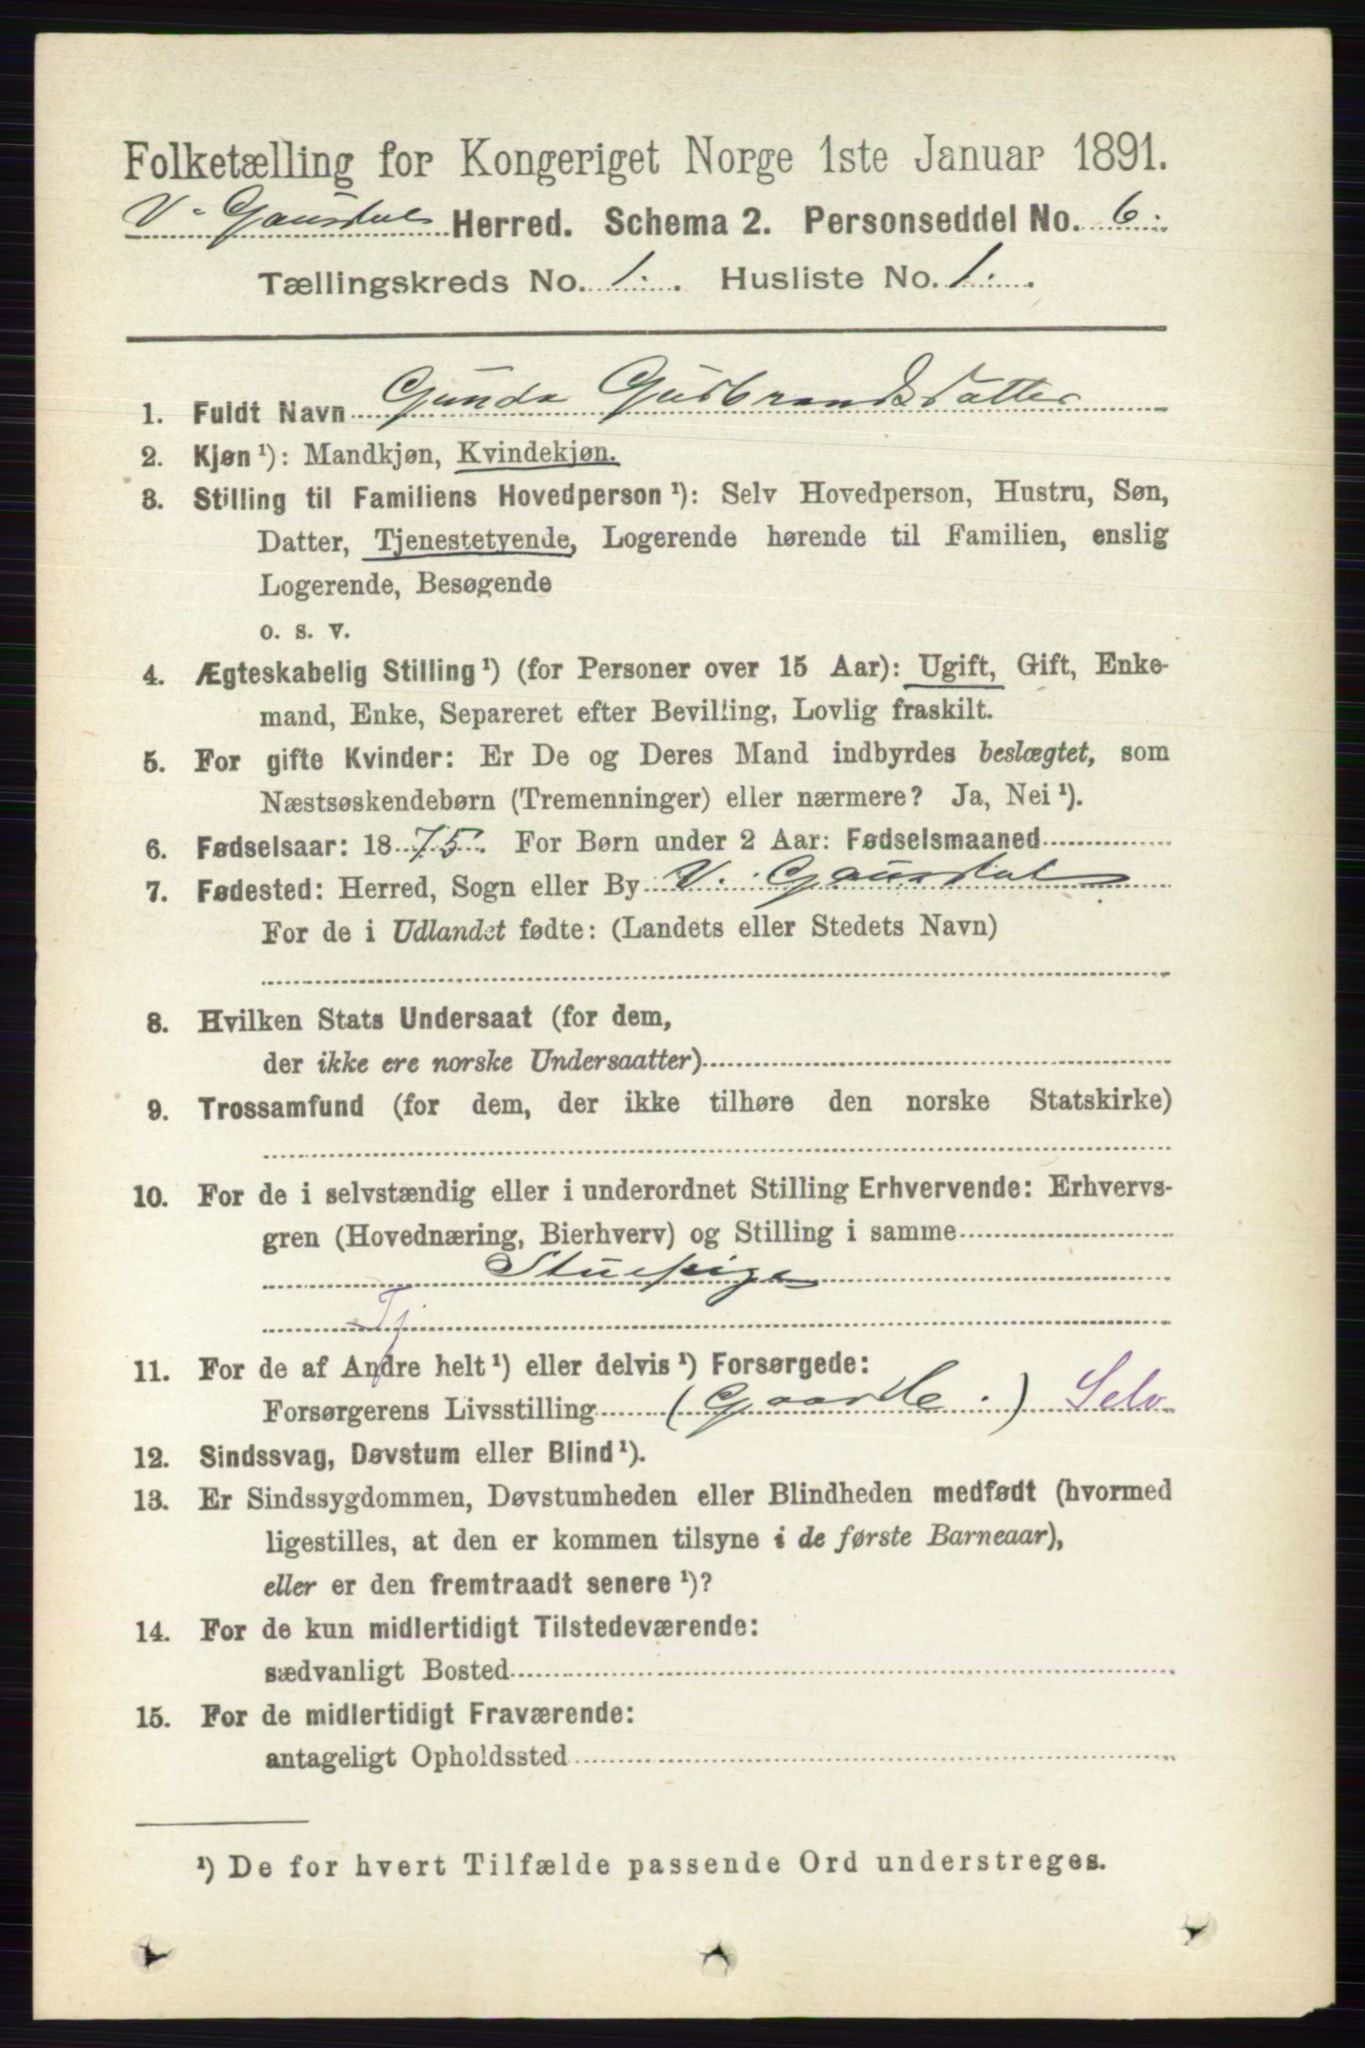 Folketælling for Kongeriget Norge 1ste Januar 1891.
V. Gausdal Herred. Schema 2. Personseddel No. 6.
Tællingskreds No. 1. Husliste No. 1.
1. Fuldt Navn Gunda Gudbrandsdatter
2. Kjøn¹): Mandkjøn, Kvindekjøn.
3. Stilling til Familiens Hovedperson¹): Selv Hovedperson, Hustru, Søn,
Datter, Tjenestetyende, Logerende hørende til Familien, enslig
Logerende, Besøgende
o. s. v.
4. Ægteskabelig Stilling¹) (for Personer over 15 Aar): Ugift, Gift, Enke-
mand, Enke, Separeret efter Bevilling, Lovlig fraskilt.
5. For gifte Kvinder: Er De og Deres Mand indbyrdes beslægtet, som
Næstsøskendebørn (Tremenninger) eller nærmere? Ja, Nei¹).
6. Fødselsaar: 1875. For Børn under 2 Aar: Fødselsmaaned
7. Fødested: Herred, Sogn eller By V. Gausdal
For de i Udlandet fødte: (Landets eller Stedets Navn)
8. Hvilken Stats Undersaat (for dem,
der ikke ere norske Undersaatter)
9. Trossamfund (for dem, der ikke tilhøre den norske Statskirke)
10. For de i selvstændig eller i underordnet Stilling Erhvervende: Erhvervs-
gren (Hovednæring, Bierhverv) og Stilling i samme
Stuepige
Tj
11. For de af Andre helt¹) eller delvis¹) Forsørgede:
Forsørgerens Livsstilling ( ) Selv
12. Sindssvag, Døvstum eller Blind¹).
13. Er Sindssygdommen, Døvstumheden eller Blindheden medfødt (hvormed
ligestilles, at den er kommen tilsyne i de første Barneaar),
eller er den fremtraadt senere¹)?
14. For de kun midlertidigt Tilstedeværende:
sædvanligt Bosted
15. For de midlertidigt Fraværende:
antageligt Opholdssted
¹) De for hvert Tilfælde passende Ord understreges.